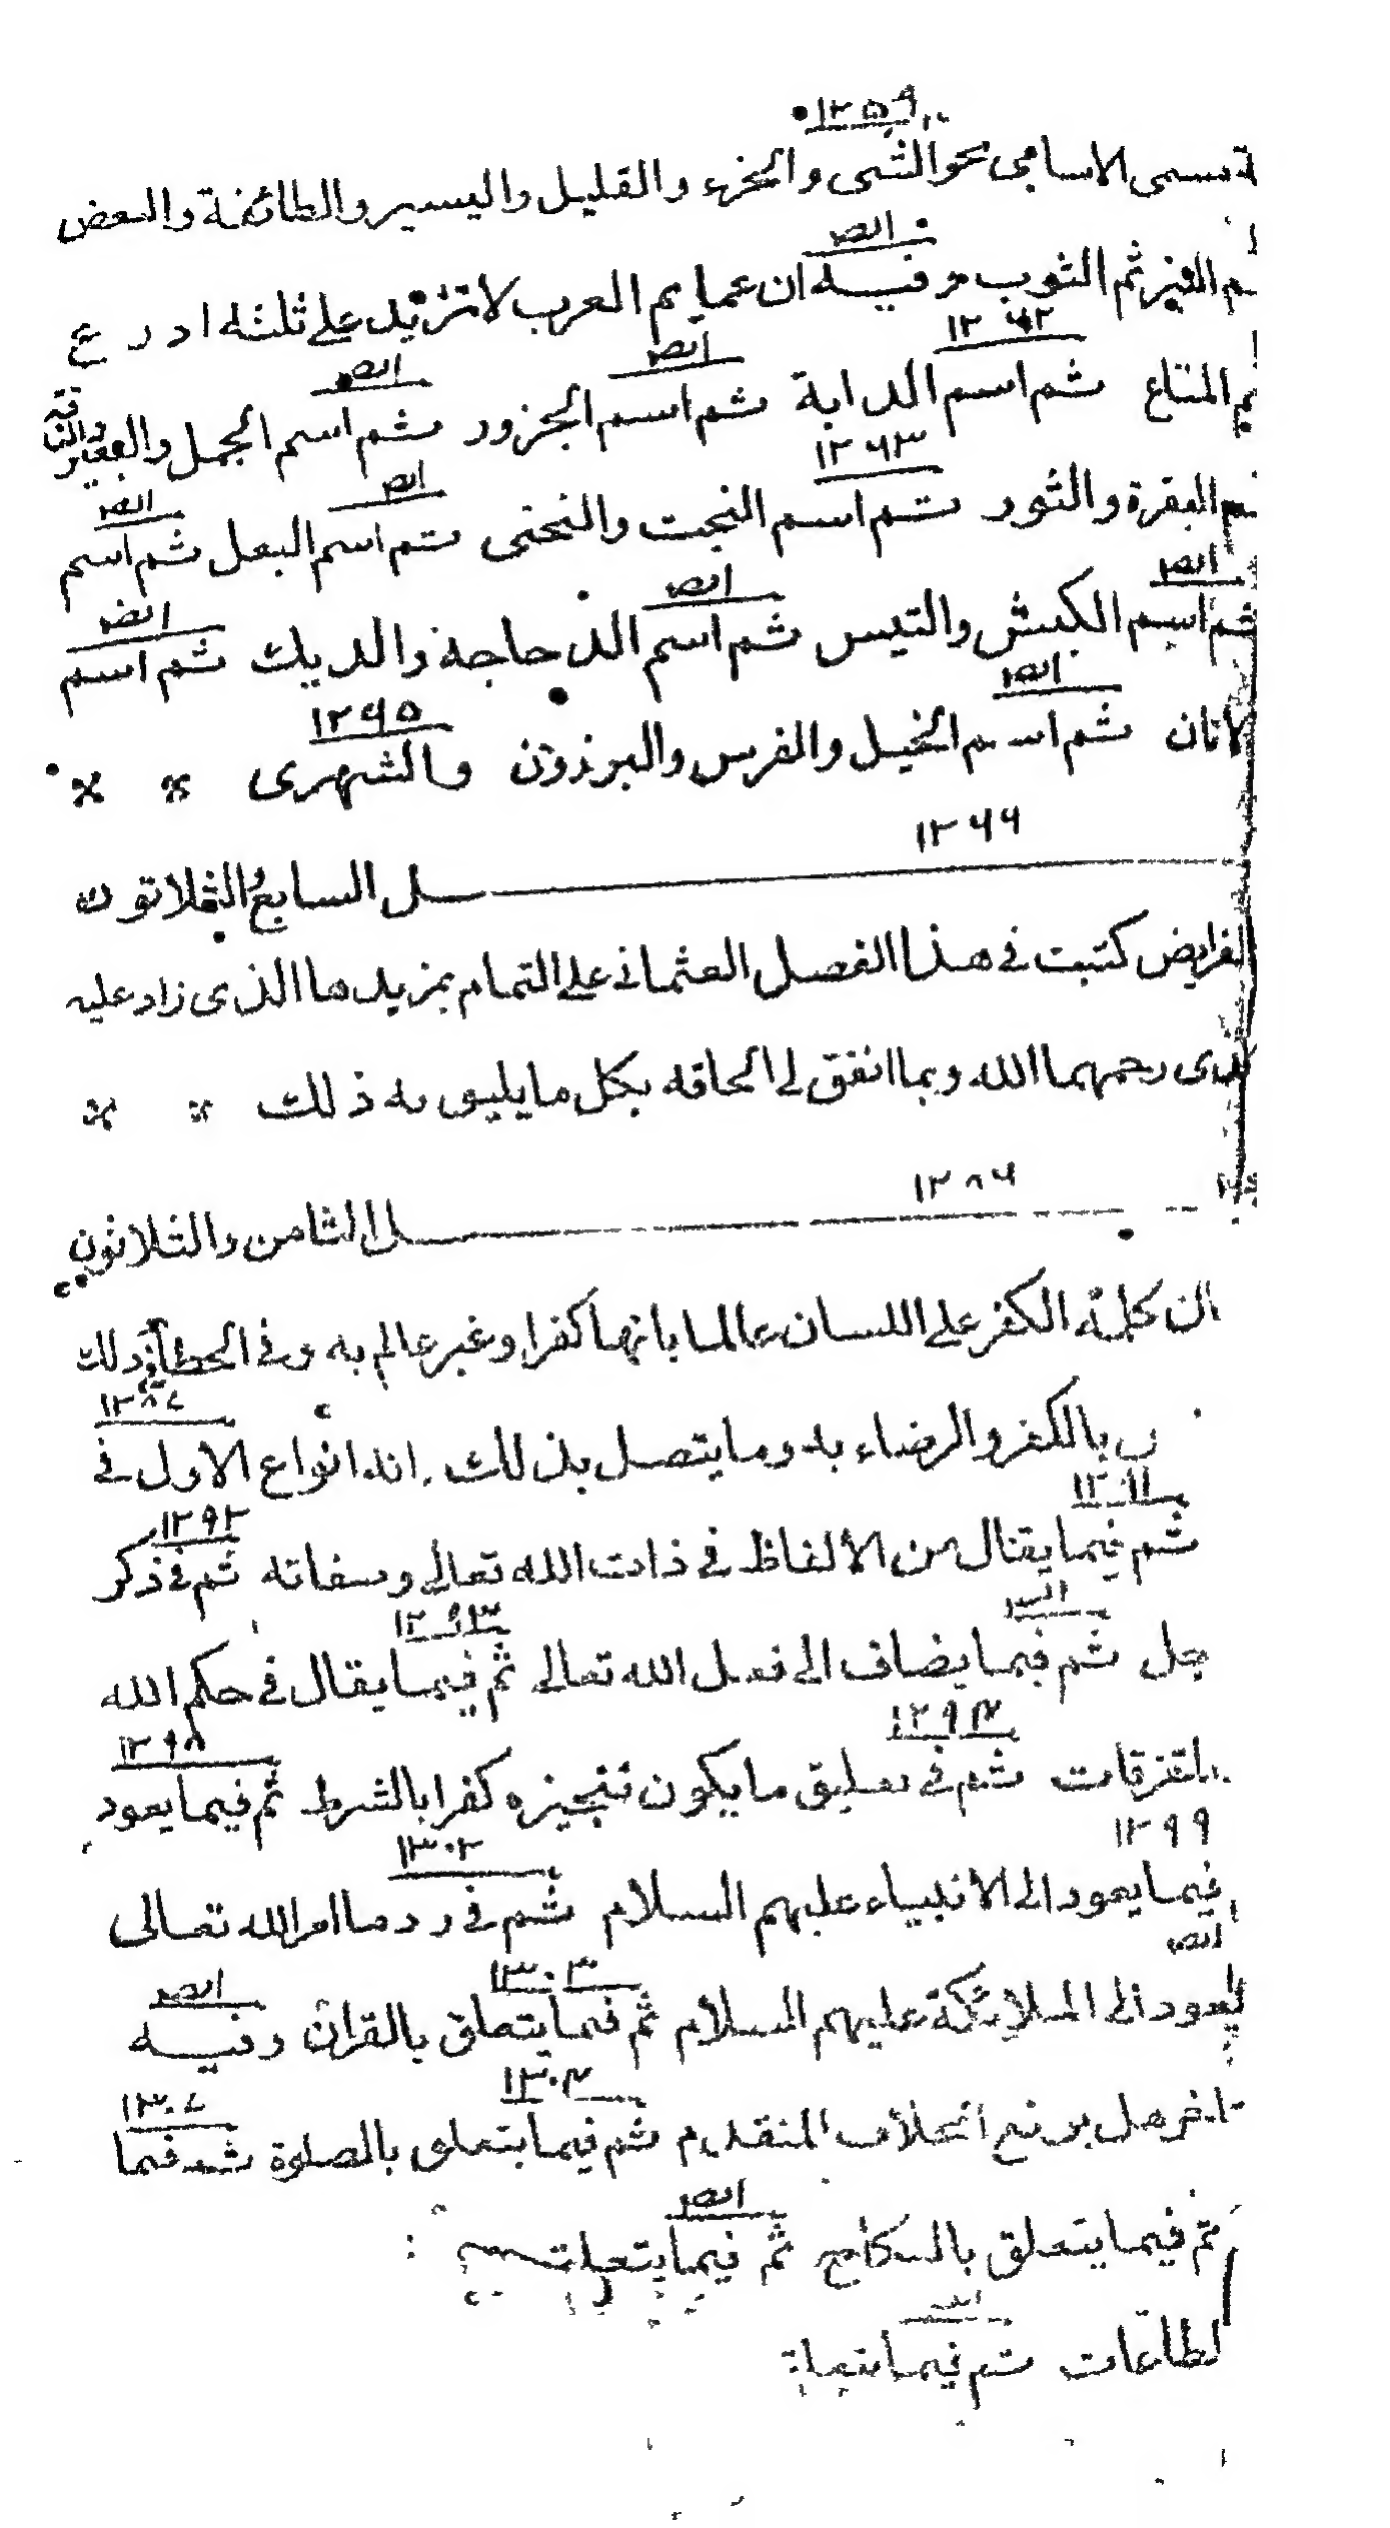 ١٢٥٩
يسمى الاسامى نحو الشى والجزء والقليل واليسير والطائفة والبعض
ايضا
ثم الثوب وفيه ان عمايم العرب لا تزيد على ثلثه ادرع
١٢٦٢ ايضا ايضا
المتاع ثم اسم الدابة ثم اسم الجزور ثم اسم الجمل والبعير والناقة
١٢٦٣ ايضا ايضا
البقرة والثور ثم اسم البخت والبختى ثم اسم البعل ثم اسم
ايضا ايضا ايضا
ثم اسم الكبش والتيس ثم اسم الدجاجة والديك ثم اسم
ايضا ١٢٦٥
لاتان ثم اسم الخيل والفرس والبرذون والشهرى
١٢٦٦
ـل السابع والثلاثون
الفرايض كتبت فى هذا الفصل العثمانى على التمام بمزيد ما الذى زاد عليه
رحمهما الله وبما اتفق لى الحاقه بكل ما يليق به ذلك
١٢٨٦
ـل الثامن والثلاثون
كلمة الكفر على اللسان عالما بانها كفرا وغير عالم به وفى الخطأ فى ذلك
١٢٨٧
بالكفر والرضاء به وما يتصل بذلك انه انواع الاول فى
١٢٩٢
ثم فيما يقال من الالفاظ فى ذات الله تعالى وصفاته ثم فى ذكر
١٢٩٣
جل ثم فيما يضاف الى فعل الله تعالى ثم فيما يقال فى حكم الله
١٢٩٤ ١٢٩٨
المتفرقات ثم فى تعليق ما يكون تنجيزه كفرا بالشرط ثم فيما يعود
١٢٩٩ ١٣٠٢
فيما يعود الى الانبياء عليهم السلام ثم فى رد ما امر الله تعالى
ايضا ١٣٠٣ ايضا
يعود الى الملائكة عليهم السلام ثم فيما يتعلق بالقران وفيه
١٣٠٤ ١٣٠٧
هل يرفع الخلاف المتقدم ثم فيما يتعلق بالصلوة ثم فيما
ايضا
ثم فيما يتعلق بالنكاح ثم فيما يتعلق
لطاعات ثم فيما يتعلق